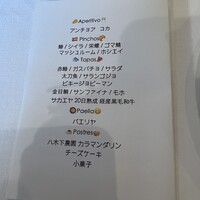 Aperitivo
アンチョア コカ
Pinchos
鯵 / シイラ / 栄螺 / ゴマ鯖
マッシュルーム / ホシエイ
Tapas
赤鯥 / ガスパチョ / サラダ
太刀魚 / サランゴジョ
ビキージョピーマン
金目鯛 / サンファイナ / モホ
サカエヤ 20日熟成 経産黒毛和牛
Paella
パエリヤ
Postres
八木下農園 カラマンダリン
チーズケーキ
小菓子